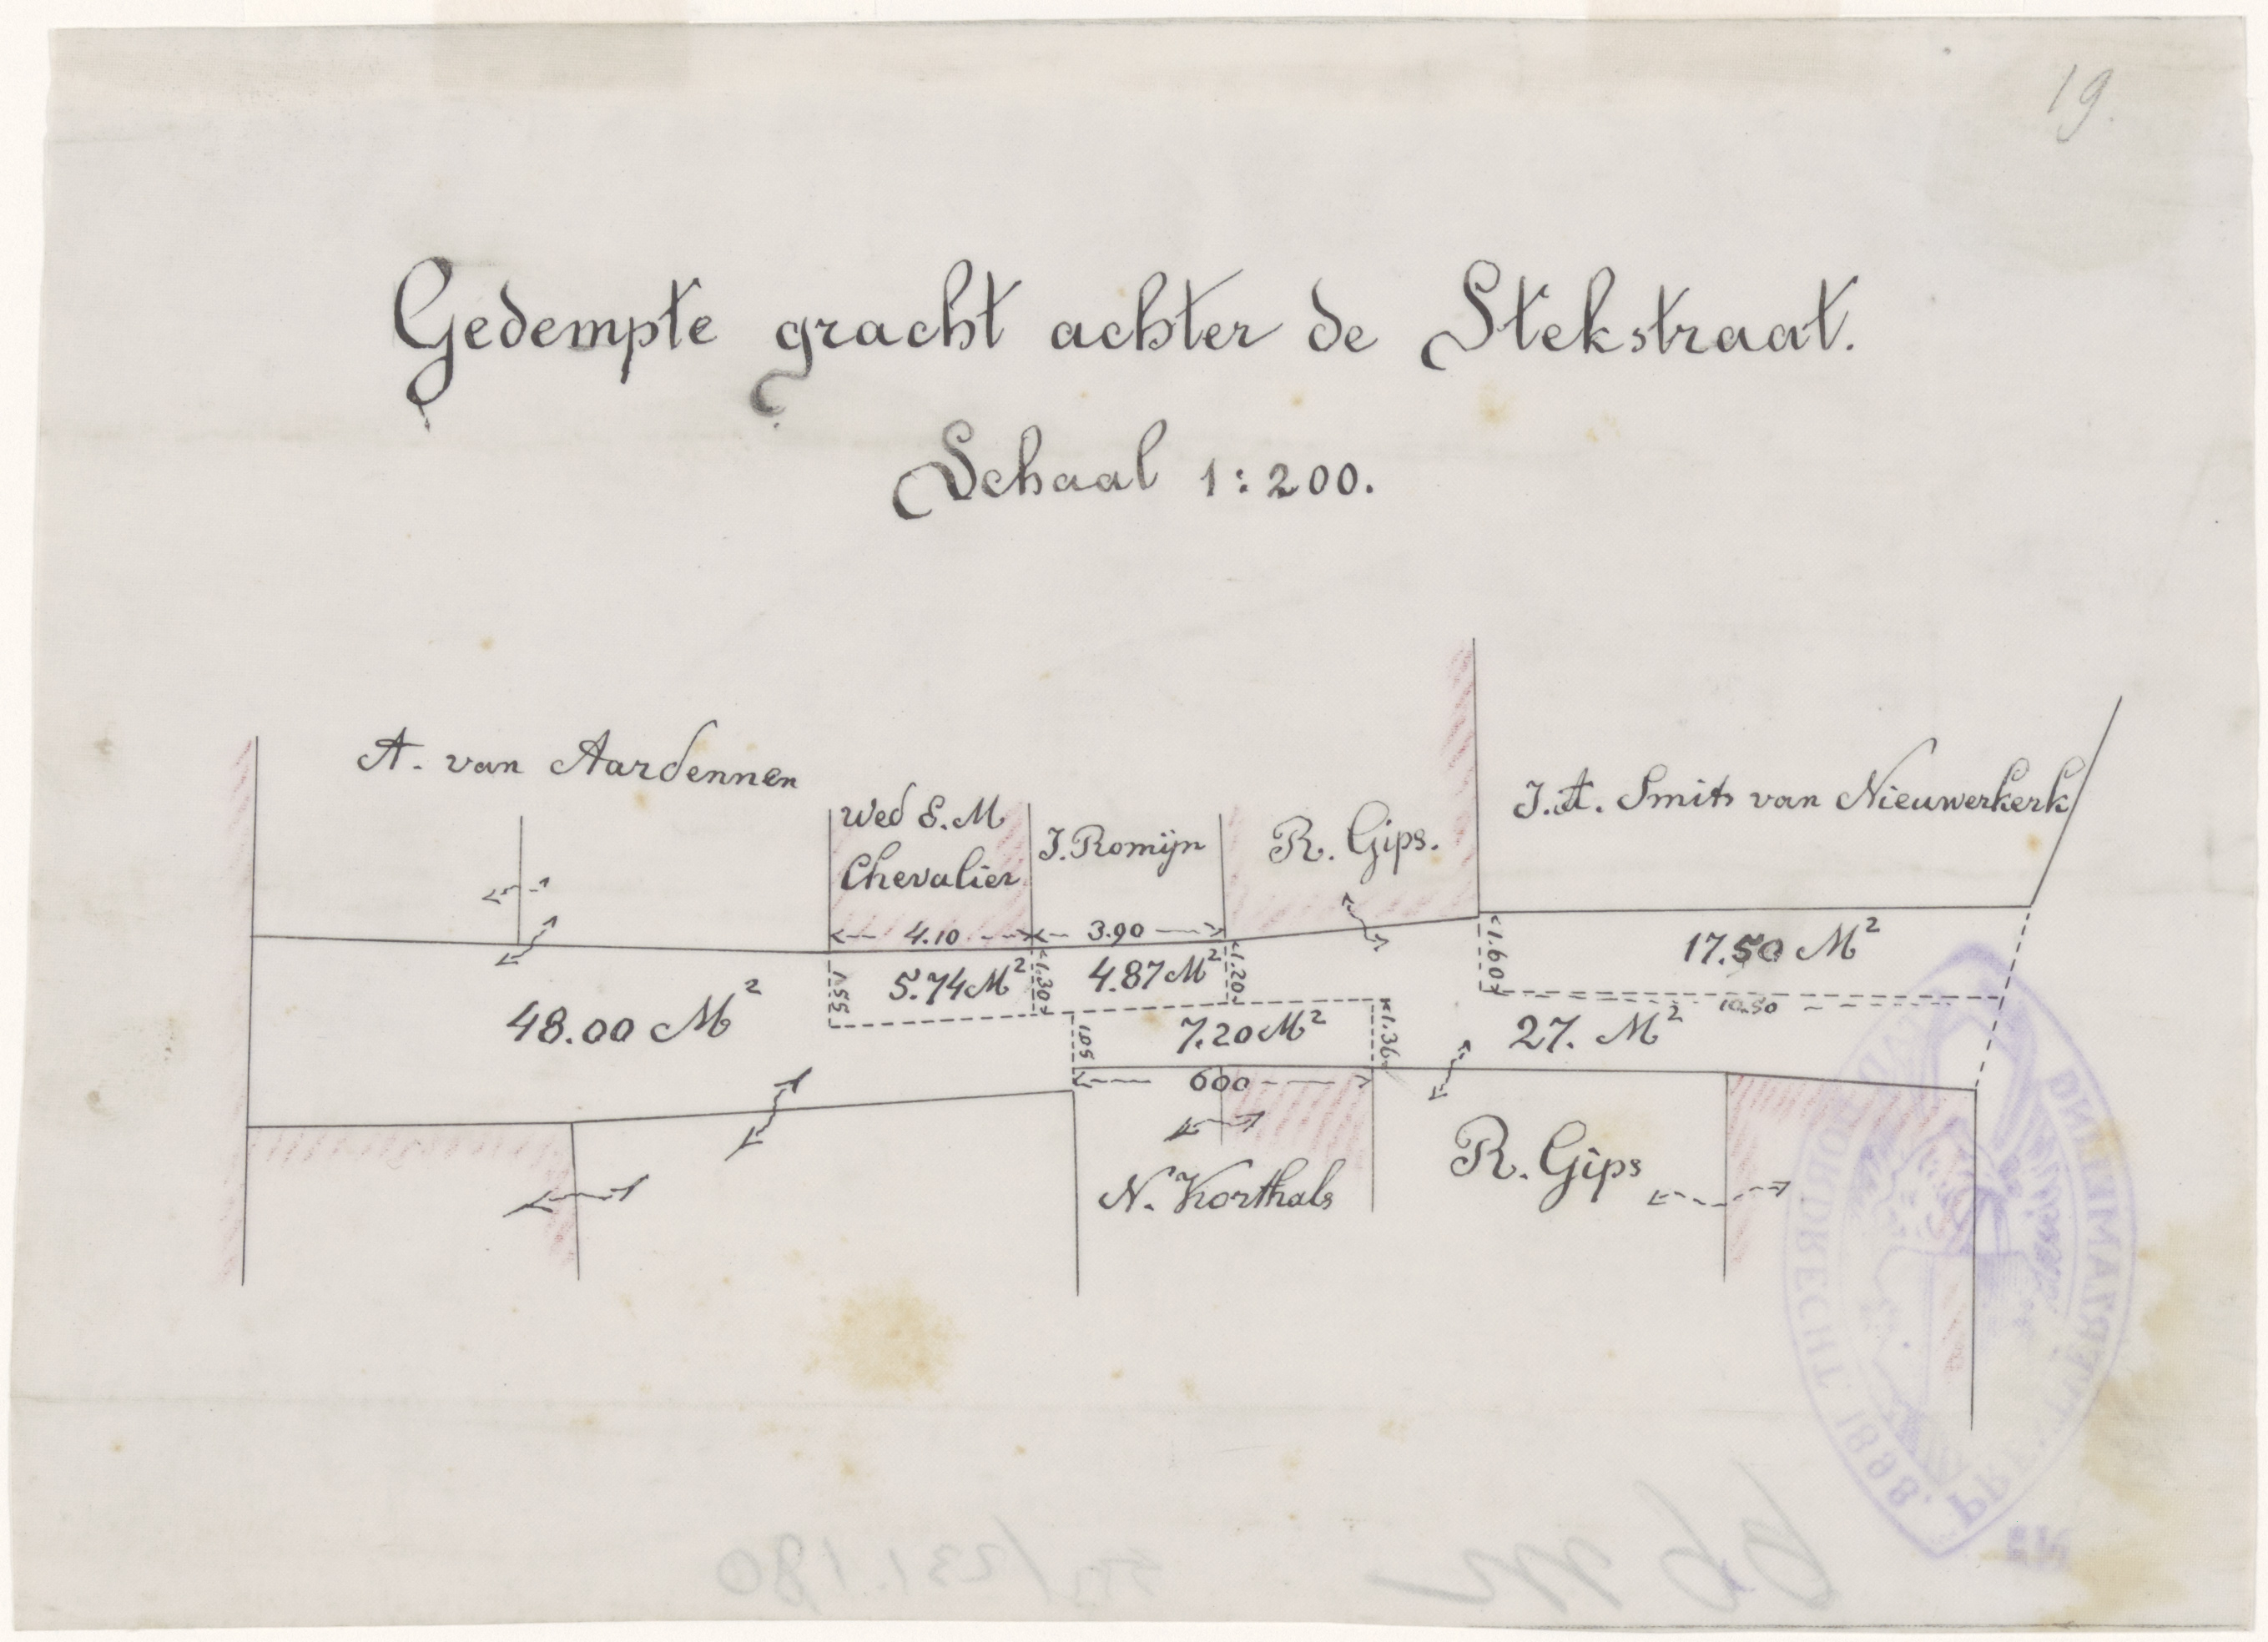 19.
Gedempte gracht achter de Stekstraat.
Schaal 1:200.
A. van Aardennen
Wed E.M
Chevalier
J. Romijn
R. Gips.
J.A. Smits van Nieuwerkerk
4.10
3.90
17.50 M²
1.55
5.74 M²
1.30
4.87 M²
1.20
1.60
10.50
48.00 M²
1.05
7.20 M²
1.36
27. M²
600
N. Korthals
R. Gips
DORDRECHT 1898.